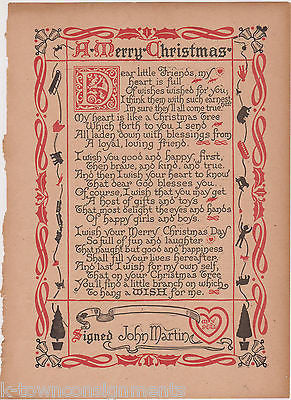 A Merry Christmas
Dear little Friends, my
heart is full
Of wishes wished for you;
I think them with such earnestness
I'm sure they'll all come true.
My heart is like a Christmas Tree
Which forth to you I send
All laden down with blessings from
A loyal, loving friend.
I wish you good and happy, first,
Then brave, and kind, and true.
And then I wish your heart to know
That dear God blesses you.
Of course, I wish that you may get
A host of gifts and toys
That most delight the eyes and hands
Of happy girls and boys.
I wish your Merry Christmas Day
So full of fun and laughter
That naught but good and happiness
Shall fill your lives hereafter.
And last I wish for my own self,
That on your Christmas Tree
You'll find a little branch on which
To hang a WISH for me.
Signed John Martin
k-townconsignments